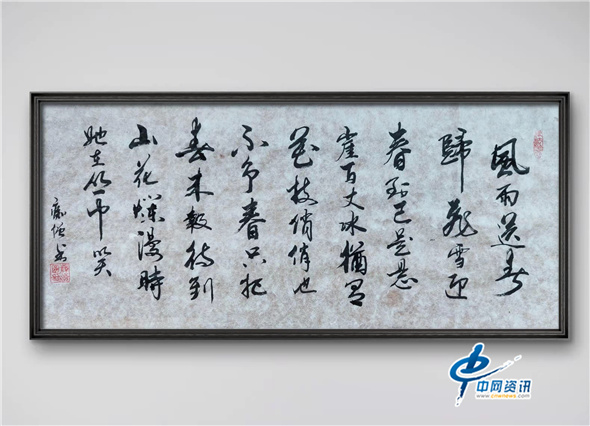 風雨送春
歸飛雪迎
春到已是懸
崖百丈冰猶有
花枝俏俏也
不争春只把
春来報待到
山花爛漫時
她在丛中笑
中网资讯
www.cnwnews.com